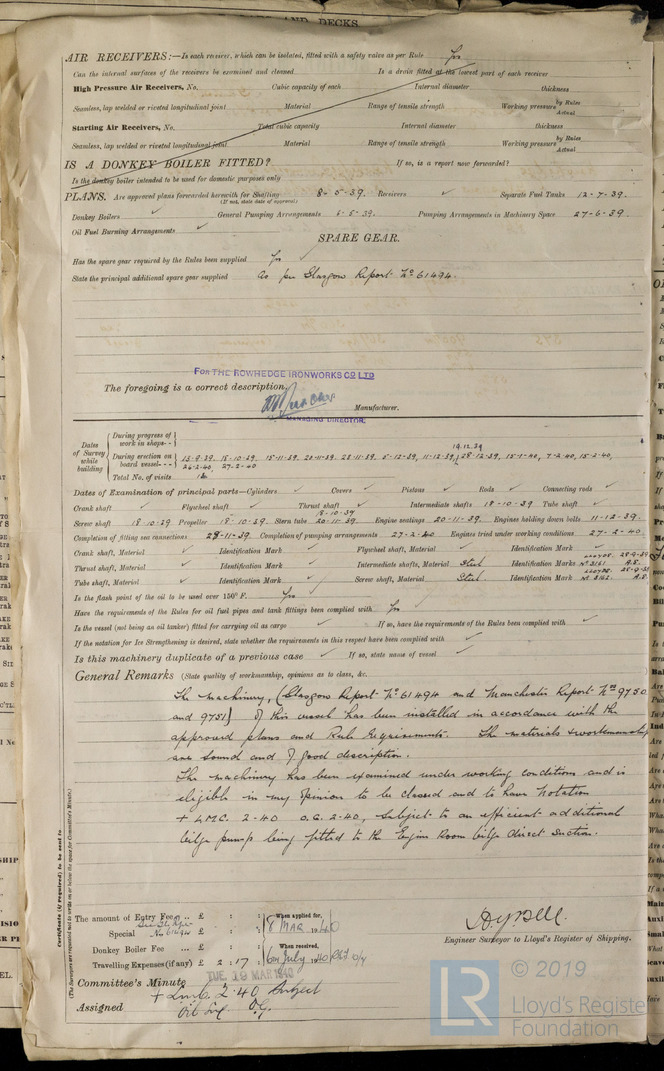 AND DECKS.
AIR RECEIVERS:—Is each receiver, which can be isolated, fitted with a safety valve as per Rule Yes
Can the internal surfaces of the receivers be examined and cleaned Is a drain fitted at the lowest part of each receiver
High Pressure Air Receivers, No. Cubic capacity of each Internal diameter thickness
Seamless, lap welded or riveted longitudinal joint Material Range of tensile strength Working pressure by Rules Actual
Starting Air Receivers, No. Total cubic capacity Internal diameter thickness
Seamless, lap welded or riveted longitudinal joint Material Range of tensile strength Working pressure by Rules Actual
IS A DONKEY BOILER FITTED? If so, is a report now forwarded?
Is the donkey boiler intended to be used for domestic purposes only
PLANS. Are approved plans forwarded herewith for Shafting 8-5-39. Receivers ✓ Separate Fuel Tanks 12-7-39.
(If not, state date of approval)
Donkey Boilers ✓ General Pumping Arrangements 6-6-39. Pumping Arrangements in Machinery Space 27-6-39.
Oil Fuel Burning Arrangements ✓
SPARE GEAR.
Has the spare gear required by the Rules been supplied Yes ✓
State the principal additional spare gear supplied as per Glasgow Report No 61494.
FOR THE ROWHEDGE IRONWORKS CO LTD
The foregoing is a correct description,
Manufacturer.
MANAGING DIRECTOR.
Dates of Survey while building
During progress of work in shops--
19.12.39
During erection on board vessel--- 13-9-39, 18-10-39, 15-11-39, 20-11-39, 28-11-39, 5-12-39, 11-12-39, 28-12-39, 15-1-40, 7-2-40, 15-2-40,
26-2-40, 27-2-40
Total No. of visits
Dates of Examination of principal parts—Cylinders ✓ Covers ✓ Pistons ✓ Rods ✓ Connecting rods ✓
Crank shaft ✓ Flywheel shaft ✓ Thrust shaft ✓ Intermediate shafts 18-10-39 Tube shaft ✓
18-10-39
Screw shaft 18.10.39 Propeller 18-10-39. Stern tube 20-11-39. Engine seatings 20-11-39. Engines holding down bolts 11-12-39.
Completion of fitting sea connections 28-11-39. Completion of pumping arrangements 27-2-40 Engines tried under working conditions 27-2-40.
Crank shaft, Material ✓ Identification Mark ✓ Flywheel shaft, Material ✓ Identification Mark ✓
Thrust shaft, Material ✓ Identification Mark ✓ Intermediate shafts, Material Steel Identification Marks No 3161 A.E.
Tube shaft, Material ✓ Identification Mark ✓ Screw shaft, Material Steel Identification Mark No 3162. A.E.
Is the flash point of the oil to be used over 150° F. Yes
Have the requirements of the Rules for oil fuel pipes and tank fittings been complied with Yes ✓
Is the vessel (not being an oil tanker) fitted for carrying oil as cargo ✓ If so, have the requirements of the Rules been complied with ✓
If the notation for Ice Strengthening is desired, state whether the requirements in this respect have been complied with ✓
Is this machinery duplicate of a previous case ✓ If so, state name of vessel ✓
General Remarks (State quality of workmanship, opinions as to class, &c.
The machinery, (Glasgow Report No 61494 and Manchester Report Nos 9750
and 9751) of this vessel has been installed in accordance with the
approved plans and Rule Requirements. The materials & workmanship
are sound and of good description.
The machinery has been examined under working conditions and is
eligible in my opinion to be classed and to have Notation
+ LMC. 2-40 O.G. 2-40, subject to an efficient additional
bilge pump being fitted to the Engine Room bilge direct suction.
Certificate (if required) to be sent to
(The Surveyors are requested not to write on or below the space for Committee's Minute.)
The amount of Entry Fee .. £ : : When applied for,
Special No 61494 £ : : 8 MAR 1940
Donkey Boiler Fee ... £ : : When received,
Travelling Expenses (if any) £ 2 : 17 : 6 July 1940
Engineer Surveyor to Lloyd's Register of Shipping.
TUE. 19 MAR 1940
Committee's Minute
+ Lmc. 2.40 Subject
Assigned Oil Eng O.G.
© 2019
LR
Lloyd's Register
Foundation